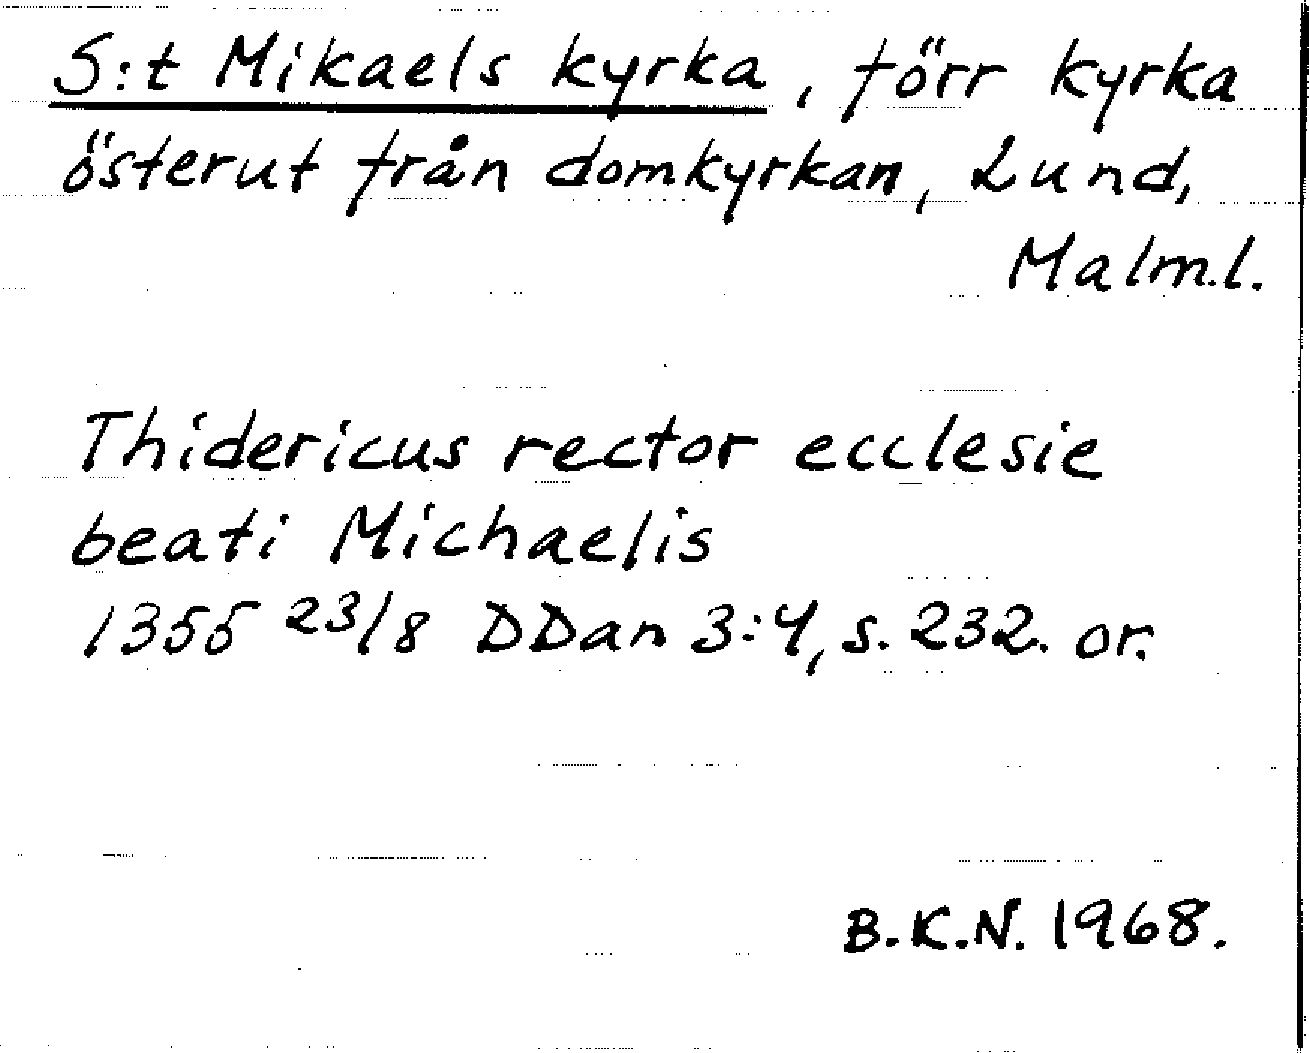 S:t Mikaels kyrka, förr kyrka
österut från domkyrkan, Lund,
Malm.l.
Thidericus rector ecclesie
beati Michaelis
1355 23/8 DDan 3:4, s. 232. or.
B.K.N. 1968.